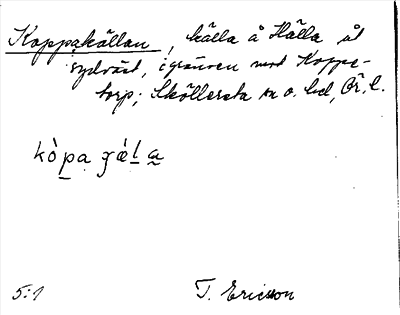 Koppakällan, källa å Hälla åt
sydväst, i gränsen mot Koppe-
torp; Sköllersta sn o. hd, Ör. l.
kòpa
5:1 T. Ericsson